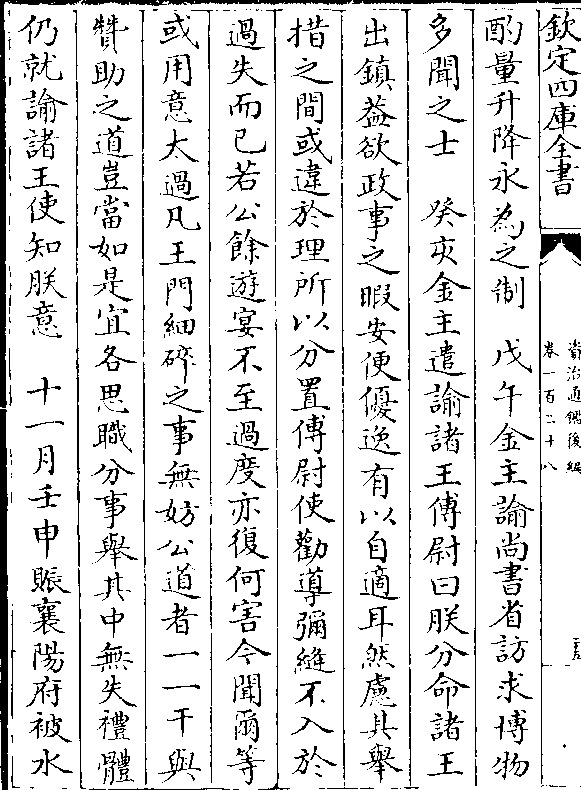 欽定四庫全書
資治通鑑後編
卷一百二十八
酌量升降永為之制　戊午金主諭尚書省訪求博物
多聞之士　癸亥金主遣諭諸王傅尉曰朕分命諸王
出鎮蓋欲政事之暇安便優逸有以自適耳然慮其舉
措之間或違於理所以分置傅尉使勸導彌縫不入於
過失而已若公餘遊宴不至過度亦復何害今聞爾等
或用意太過凡王門細碎之事無妨公道者一一干與
贊助之道豈當如是宜各思職分事舉其中無失禮體
仍就諭諸王使知朕意　十一月壬申賑襄陽府被水